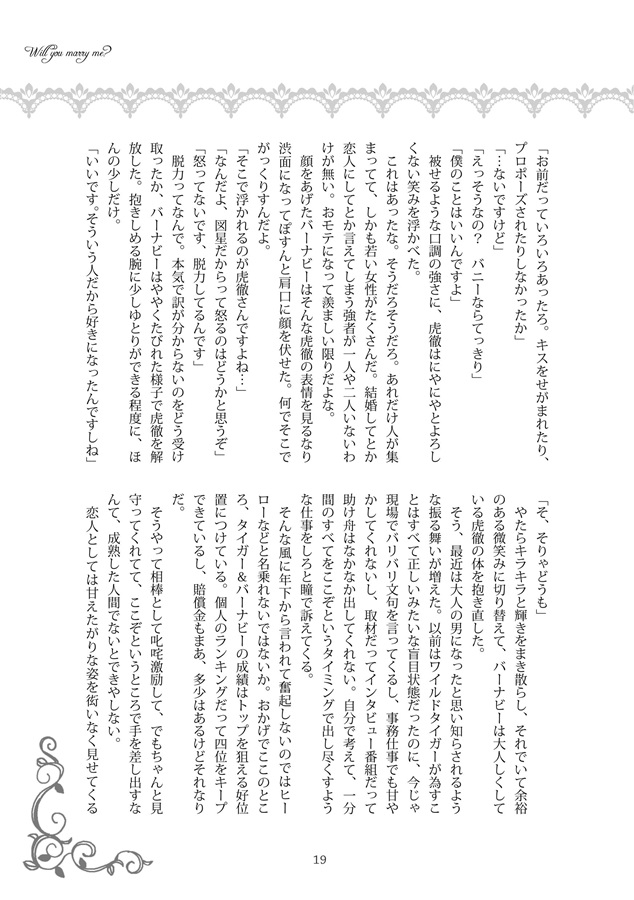 Will you marry me?
「お前だっていろいろあったろ。キスをせがまれたり、
プロポーズされたりしなかったか」
「…ないですけど」
「えっそうなの？　バニーならてっきり」
「僕のことはいいんですよ」
　被せるような口調の強さに、虎徹はにやにやとよろし
くない笑みを浮かべた。
　これはあったな。そうだろそうだろ。あれだけ人が集
まってて、しかも若い女性がたくさんだ。結婚してとか
恋人にしてとか言えてしまう強者が一人や二人いないわ
けが無い。おモテになって羨ましい限りだよな。
　顔をあげたバーナビーはそんな虎徹の表情を見るなり
渋面になってぽすんと肩口に顔を伏せた。何でそこで
がっくりすんだよ。
「そこで浮かれるのが虎徹さんですよね…」
「なんだよ、図星だからって怒るのはどうかと思うぞ」
「怒ってないです、脱力してるんです」
　脱力ってなんで。本気で訳が分からないのをどう受け
取ったか、バーナビーはややくたびれた様子で虎徹を解
放した。抱きしめる腕に少しゆとりができる程度に、ほ
んの少しだけ。
「いいです。そういう人だから好きになったんですしね」
「そ、そりゃどうも」
　やたらキラキラと輝きをまき散らし、それでいて余裕
のある微笑みに切り替えて、バーナビーは大人しくして
いる虎徹の体を抱き直した。
　そう、最近は大人の男になったと思い知らされるよう
な振る舞いが増えた。以前はワイルドタイガーが為すこ
とはすべて正しいみたいな盲目状態だったのに、今じゃ
現場でバリバリ文句を言ってくるし、事務仕事でも甘や
かしてくれないし、取材だってインタビュー番組だって
助け舟はなかなか出してくれない。自分で考えて、一分
間のすべてをここぞというタイミングで出し尽くすよう
な仕事をしろと瞳で訴えてくる。
　そんな風に年下から言われて奮起しないのではヒー
ローなどと名乗れないではないか。おかげでここのとこ
ろ、タイガー＆バーナビーの成績はトップを狙える好位
置につけている。個人のランキングだって四位をキープ
できているし、賠償金もまあ、多少はあるけどそれなり
だ。
　そうやって相棒として叱咤激励して、でもちゃんと見
守ってくれてて、ここぞというところで手を差し出すな
んて、成熟した人間でないとできやしない。
　恋人としては甘えたがりな姿を衒いなく見せてくる
19